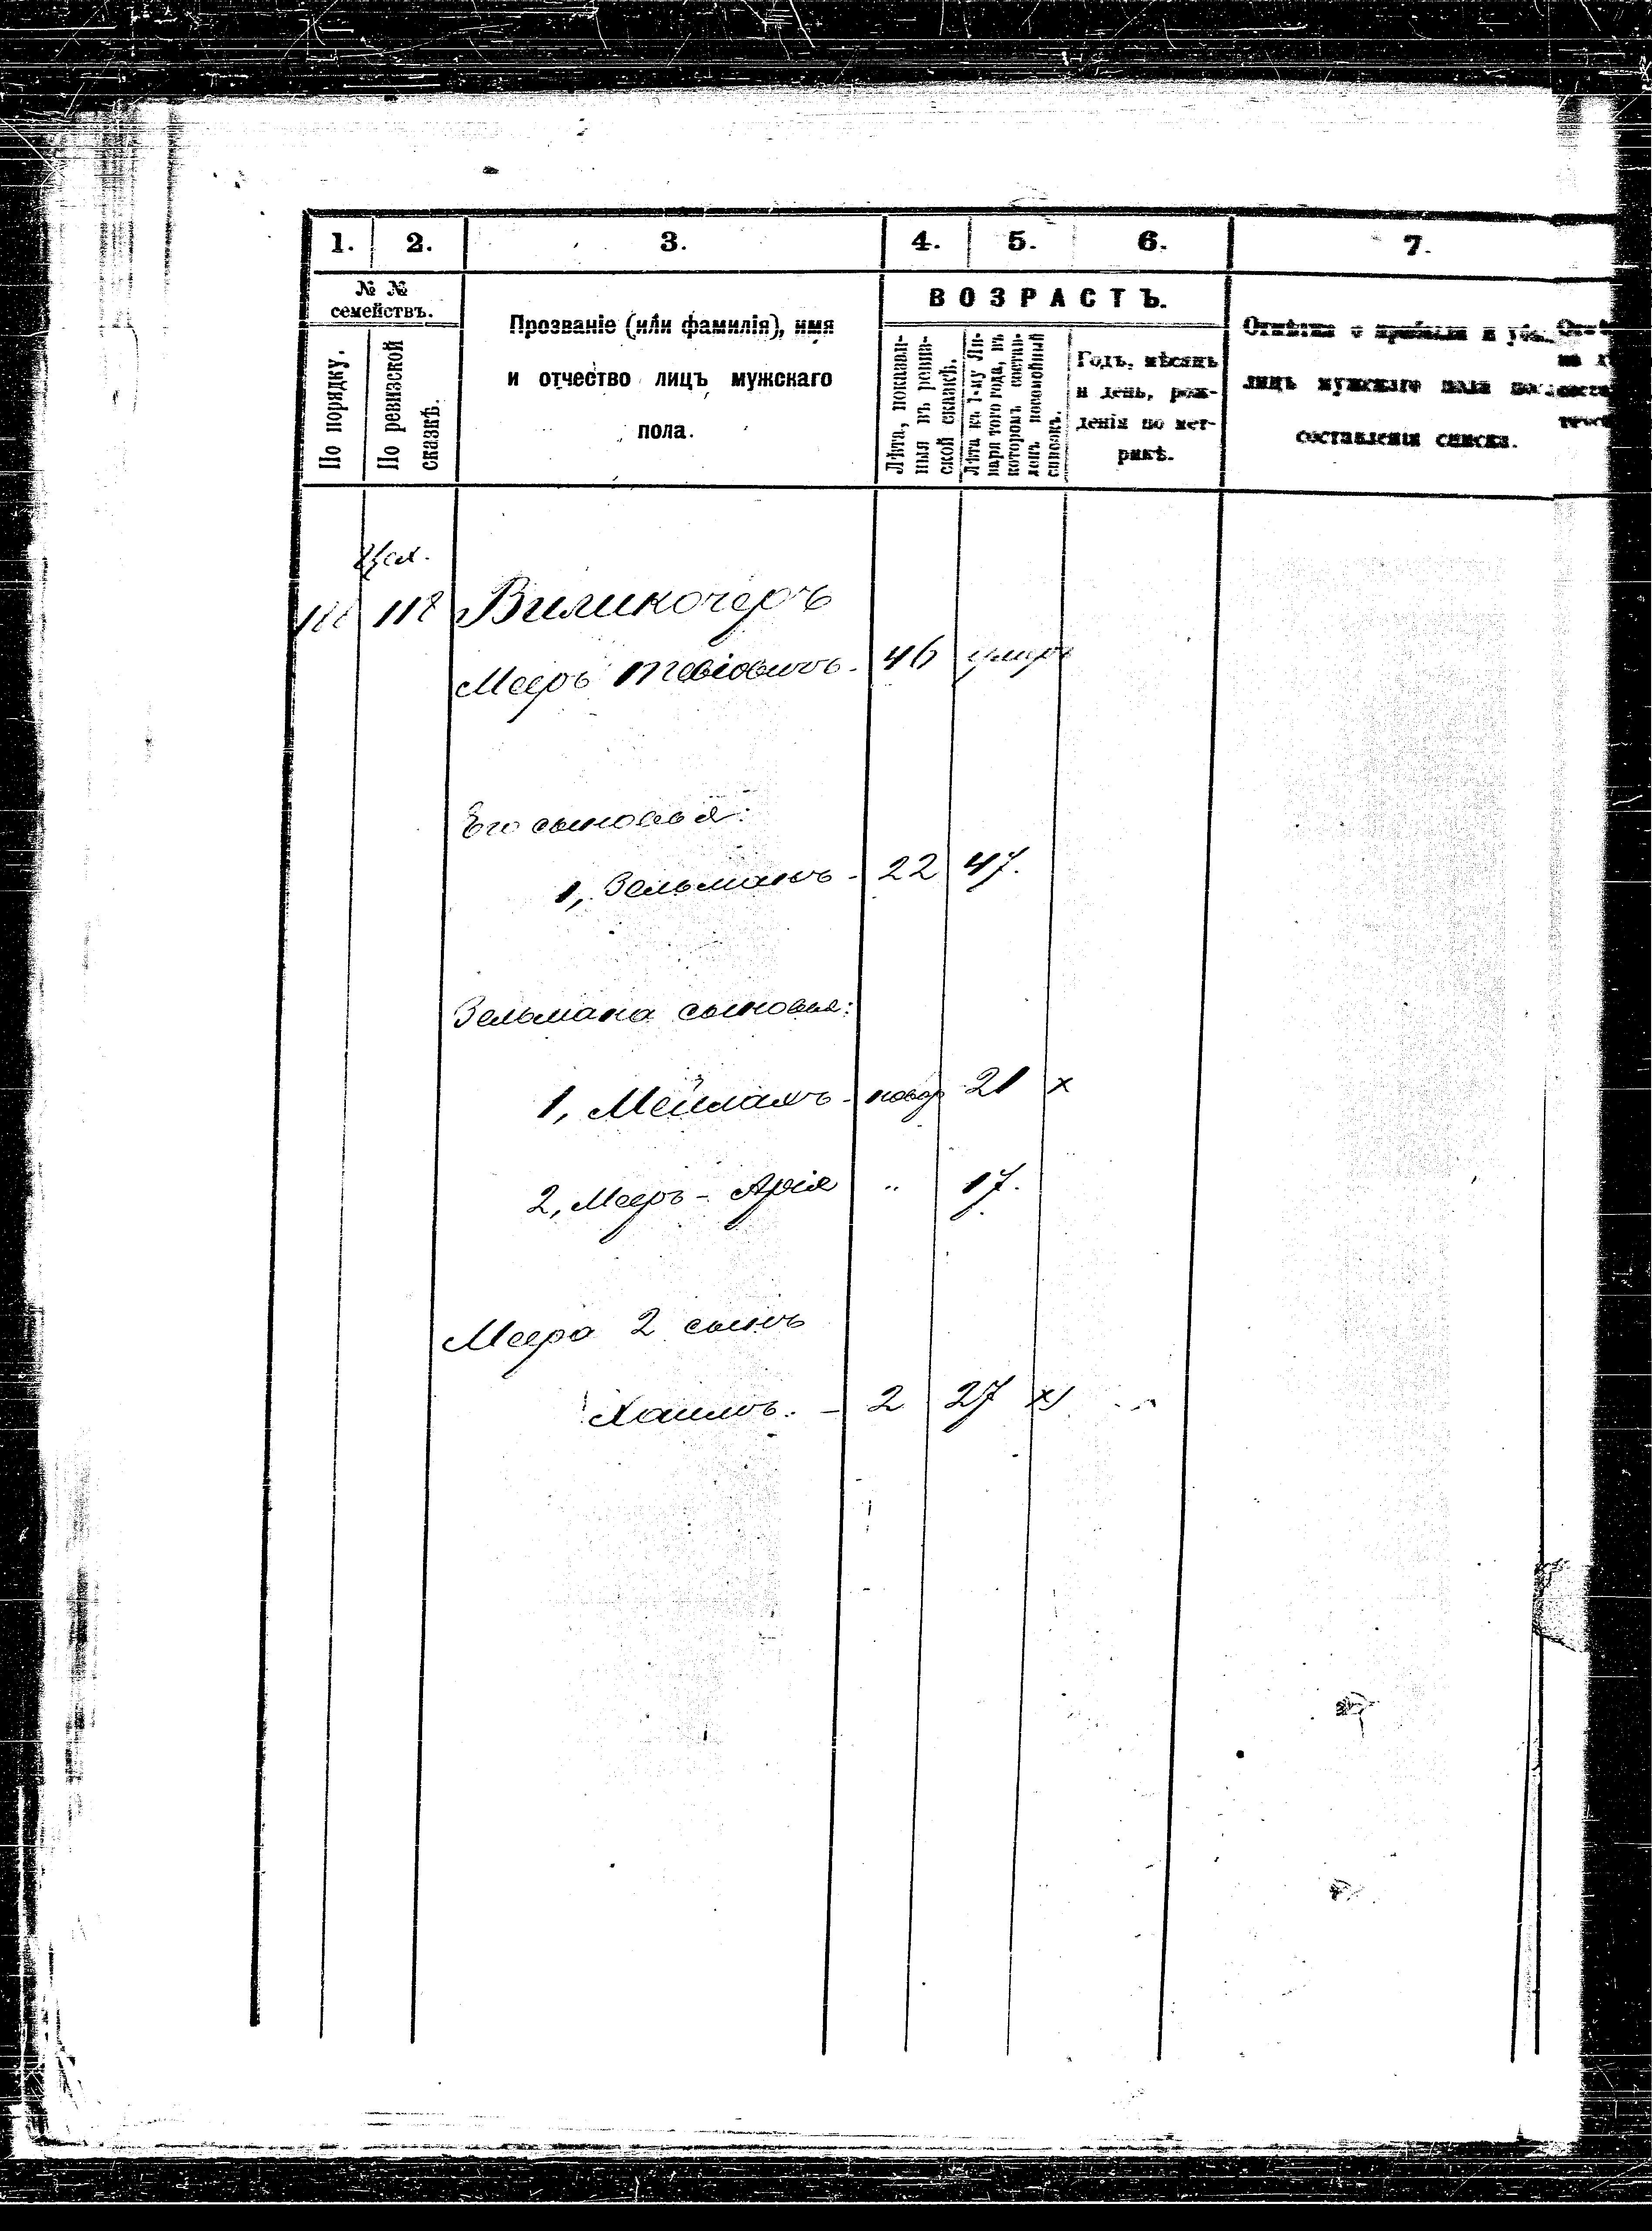 1. 2. 3. 4. 5. 6. 7.
№ №
семействъ.
По порядку.
По ревизской
сказкѣ.
Прозваніе (или фамилія), имя
и отчество лицъ мужскаго
пола.
ВОЗРАСТЪ.
Лѣта, показан-
ныя въ ревиз-
ской сказкѣ.
Лѣта къ 1-му Ян-
варя того года, въ
которомъ состав-
ленъ посемейный
списокъ.
Годъ, мѣсяцъ
и день, рож-
денія по мет-
рикѣ.
Отмѣтки о прибыли и
лицъ мужскаго пола
составленія списка.
118 Виликочеръ
Мееръ 46 умеръ
Его сыновья:
1, Зельманъ - 22 47.
Зельмана сыновья:
1, Мейлахъ - новор 21 х
2, Мееръ - Арія " 17.
Меера 2 сынъ
Хаимъ. - 2 27